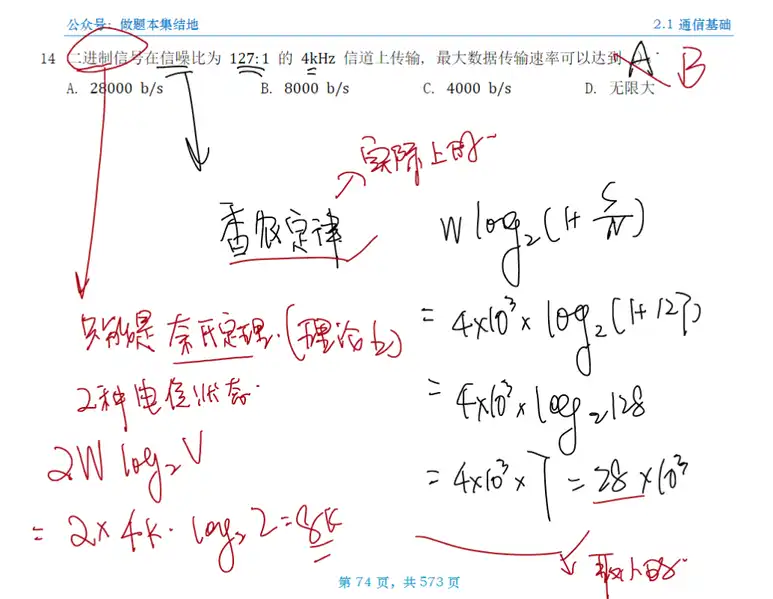 公众号：做题本集结地 2.1 通信基础
14 二进制信号在信噪比为 127:1 的 4kHz 信道上传输，最大数据传输速率可以达到 A B
A. 28000 b/s B. 8000 b/s C. 4000 b/s D. 无限大
实际上的
香农定律
W log₂(1+S/N)
只能是 奈氏定理.(理论上)
= 4×10³ × log₂(1+127)
2种电位状态.
= 4×10³ × log₂128
2W log₂V
= 4×10³ × 7 = 28 ×10³
= 2× 4k· log₂2=8k
取小的
第 74 页，共 573 页